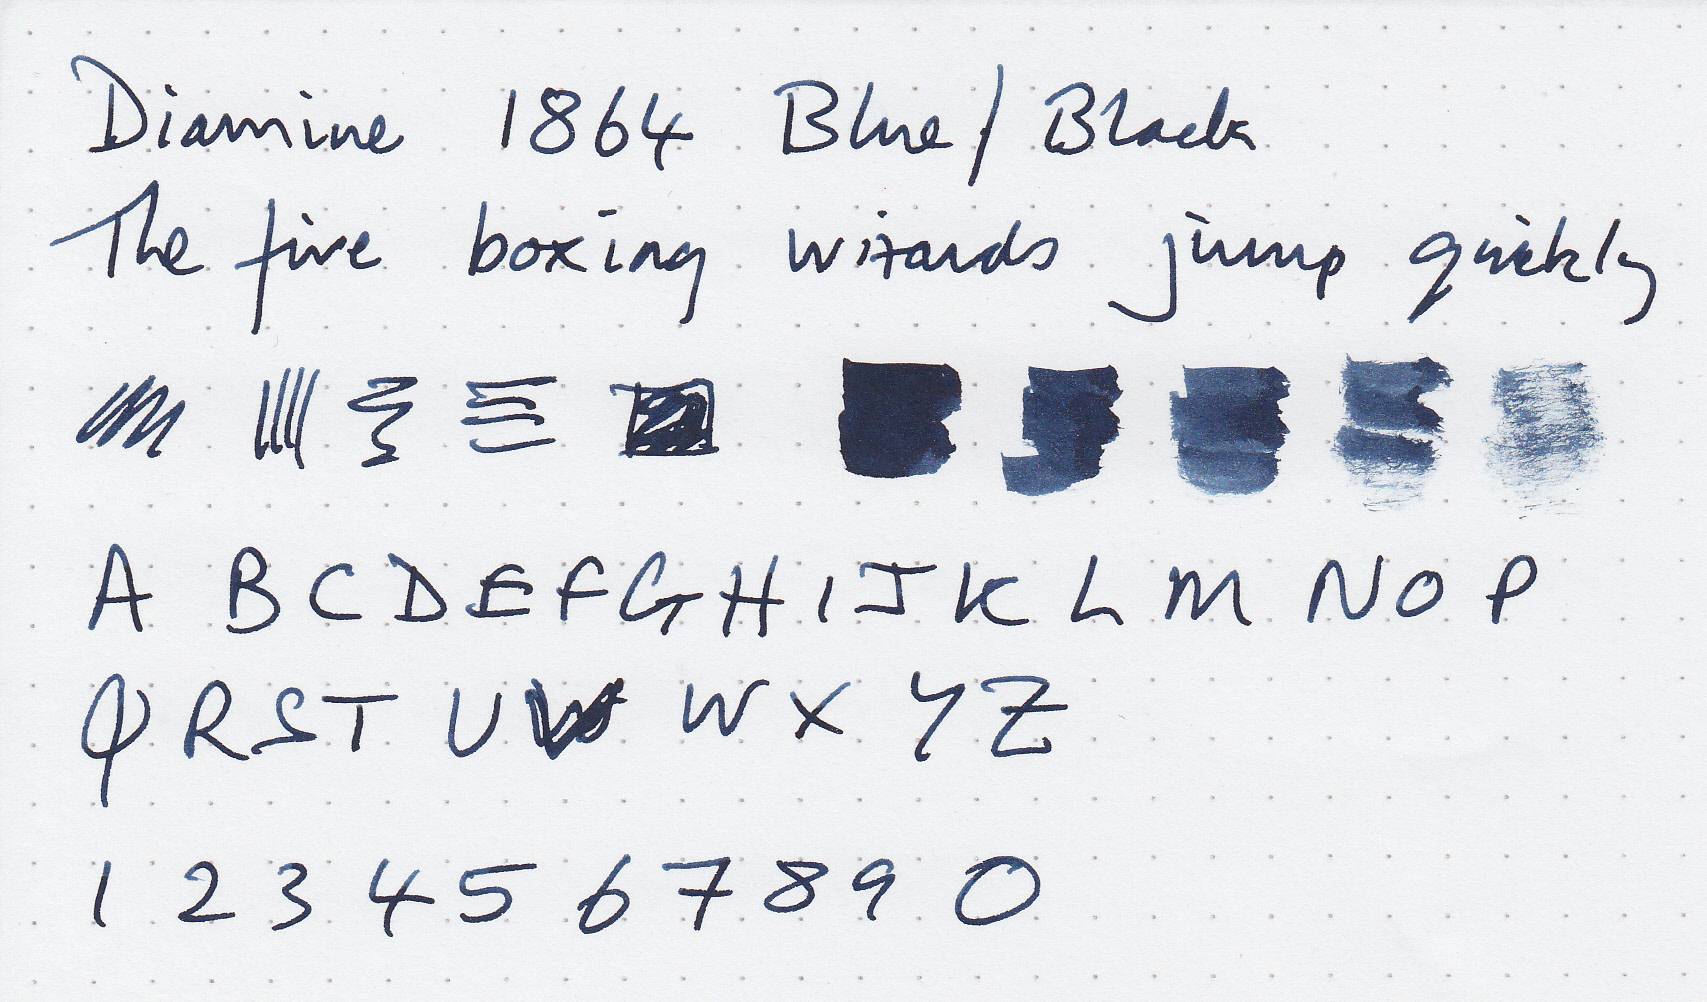 Diamine 1864 Blue/Black
The five boxing wizards jump quickly
A B C D E F G H I J K L M N O P
Q R S T U V W X Y Z
1 2 3 4 5 6 7 8 9 0